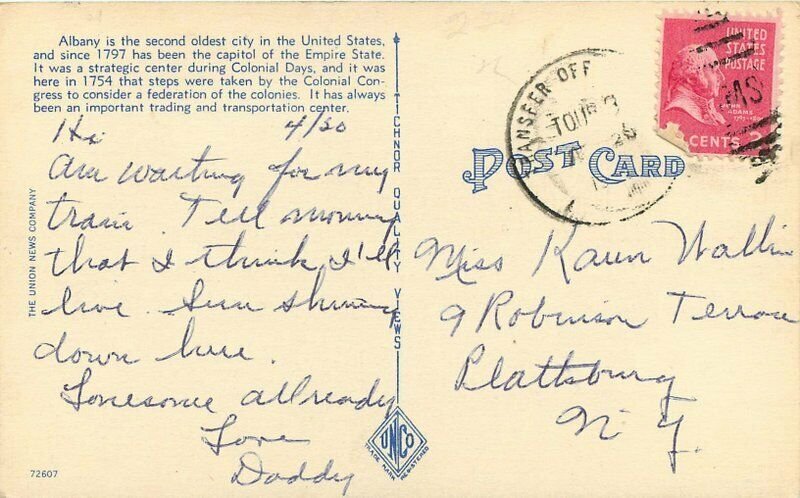 Albany is the second oldest city in the United States,
and since 1797 has been the capitol of the Empire State.
It was a strategic center during Colonial Days, and it was
here in 1754 that steps were taken by the Colonial Con-
gress to consider a federation of the colonies. It has always
been an important trading and transportation center.
Hi 4/20
Am waiting for my
train. Tell mommy
that I think I'll
live. Sun shining
down here.
Lonesome allready
Love
Daddy
THE UNION NEWS COMPANY
72607
TICHNOR QUALITY VIEWS
UNCO
TRADE MARK REGISTERED
POST CARD
TRANSFER OFF
TOUR 3
26
MS
UNITED
STATES
POSTAGE
JOHN
ADAMS
CENTS 2
Miss Karen Wallin
9 Robinson Terrace
Plattsburg
N Y.